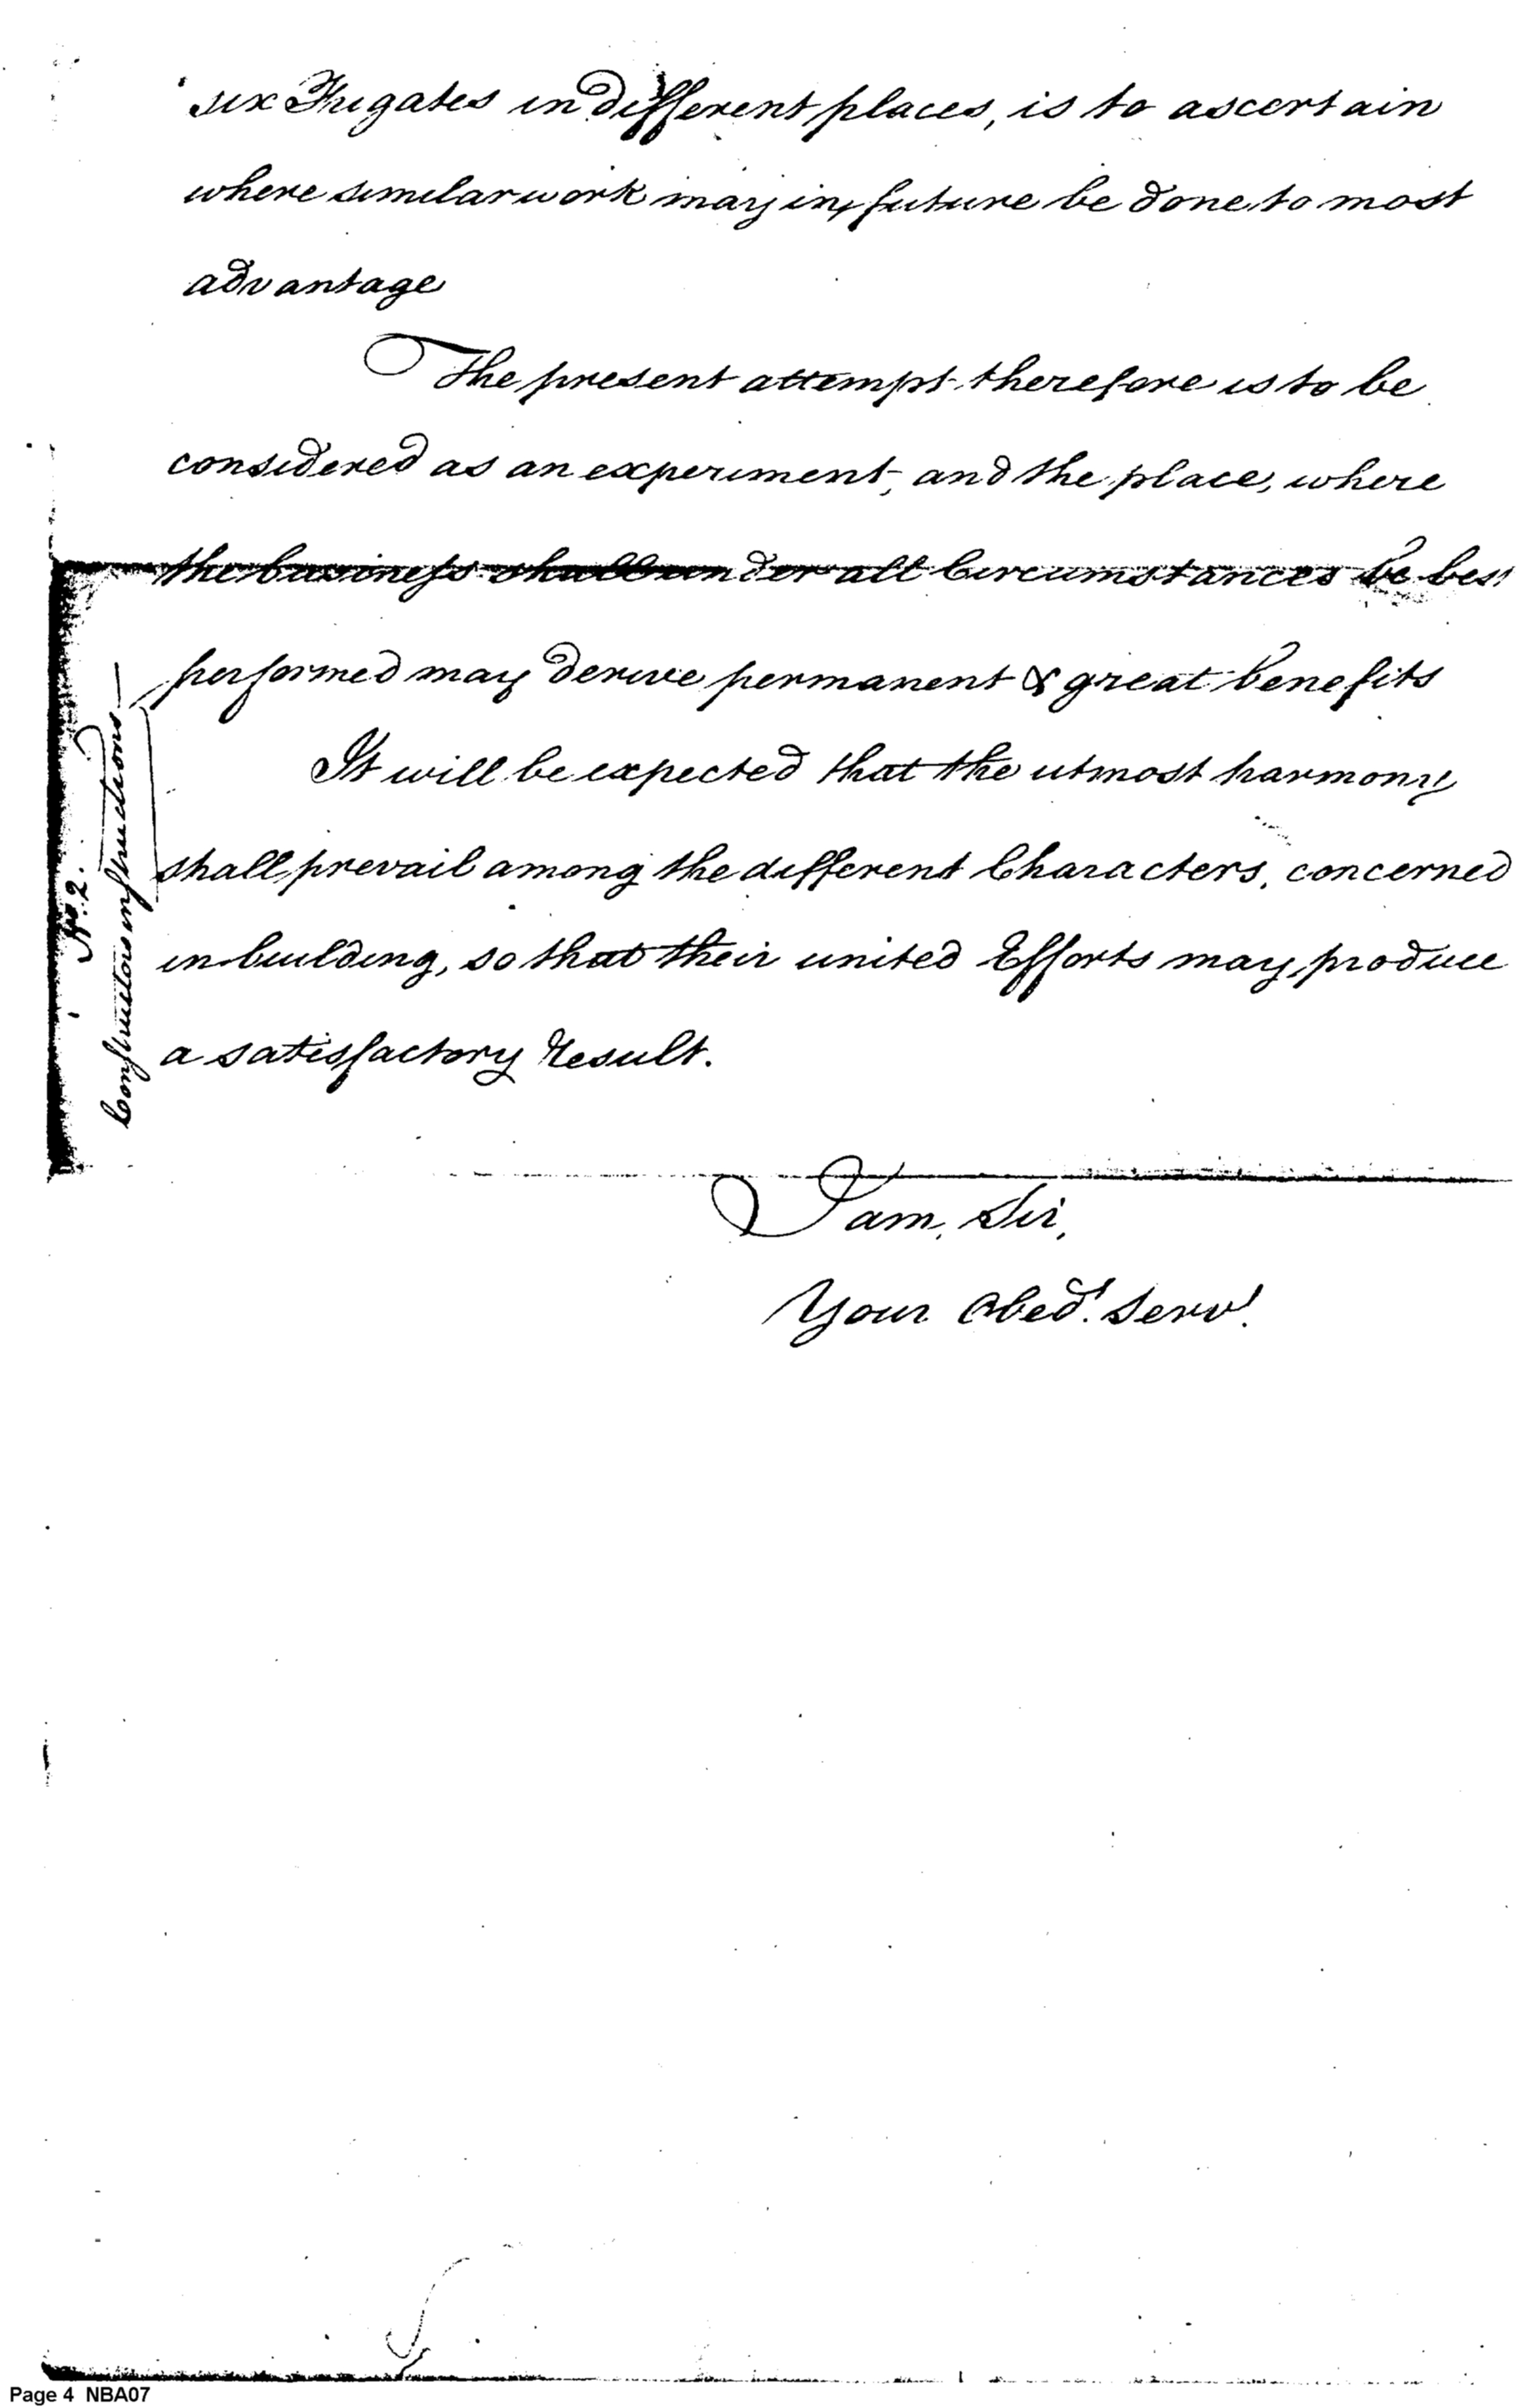 six Frigates in different places, is to ascertain
where similar work may in future be done to most
advantage
The present attempt therefore is to be
considered as an experiment, and the place, where
the business shall under all Circumstances be best
performed may derive permanent & great benefits
It will be expected that the utmost harmony
shall prevail among the different Characters, concerned
in building, so that their united Efforts may produce
a satisfactory Result.
I am, Sir,
Your Obedt. Servt.
No. 2.
Constructors instructions
Page 4 NBA07